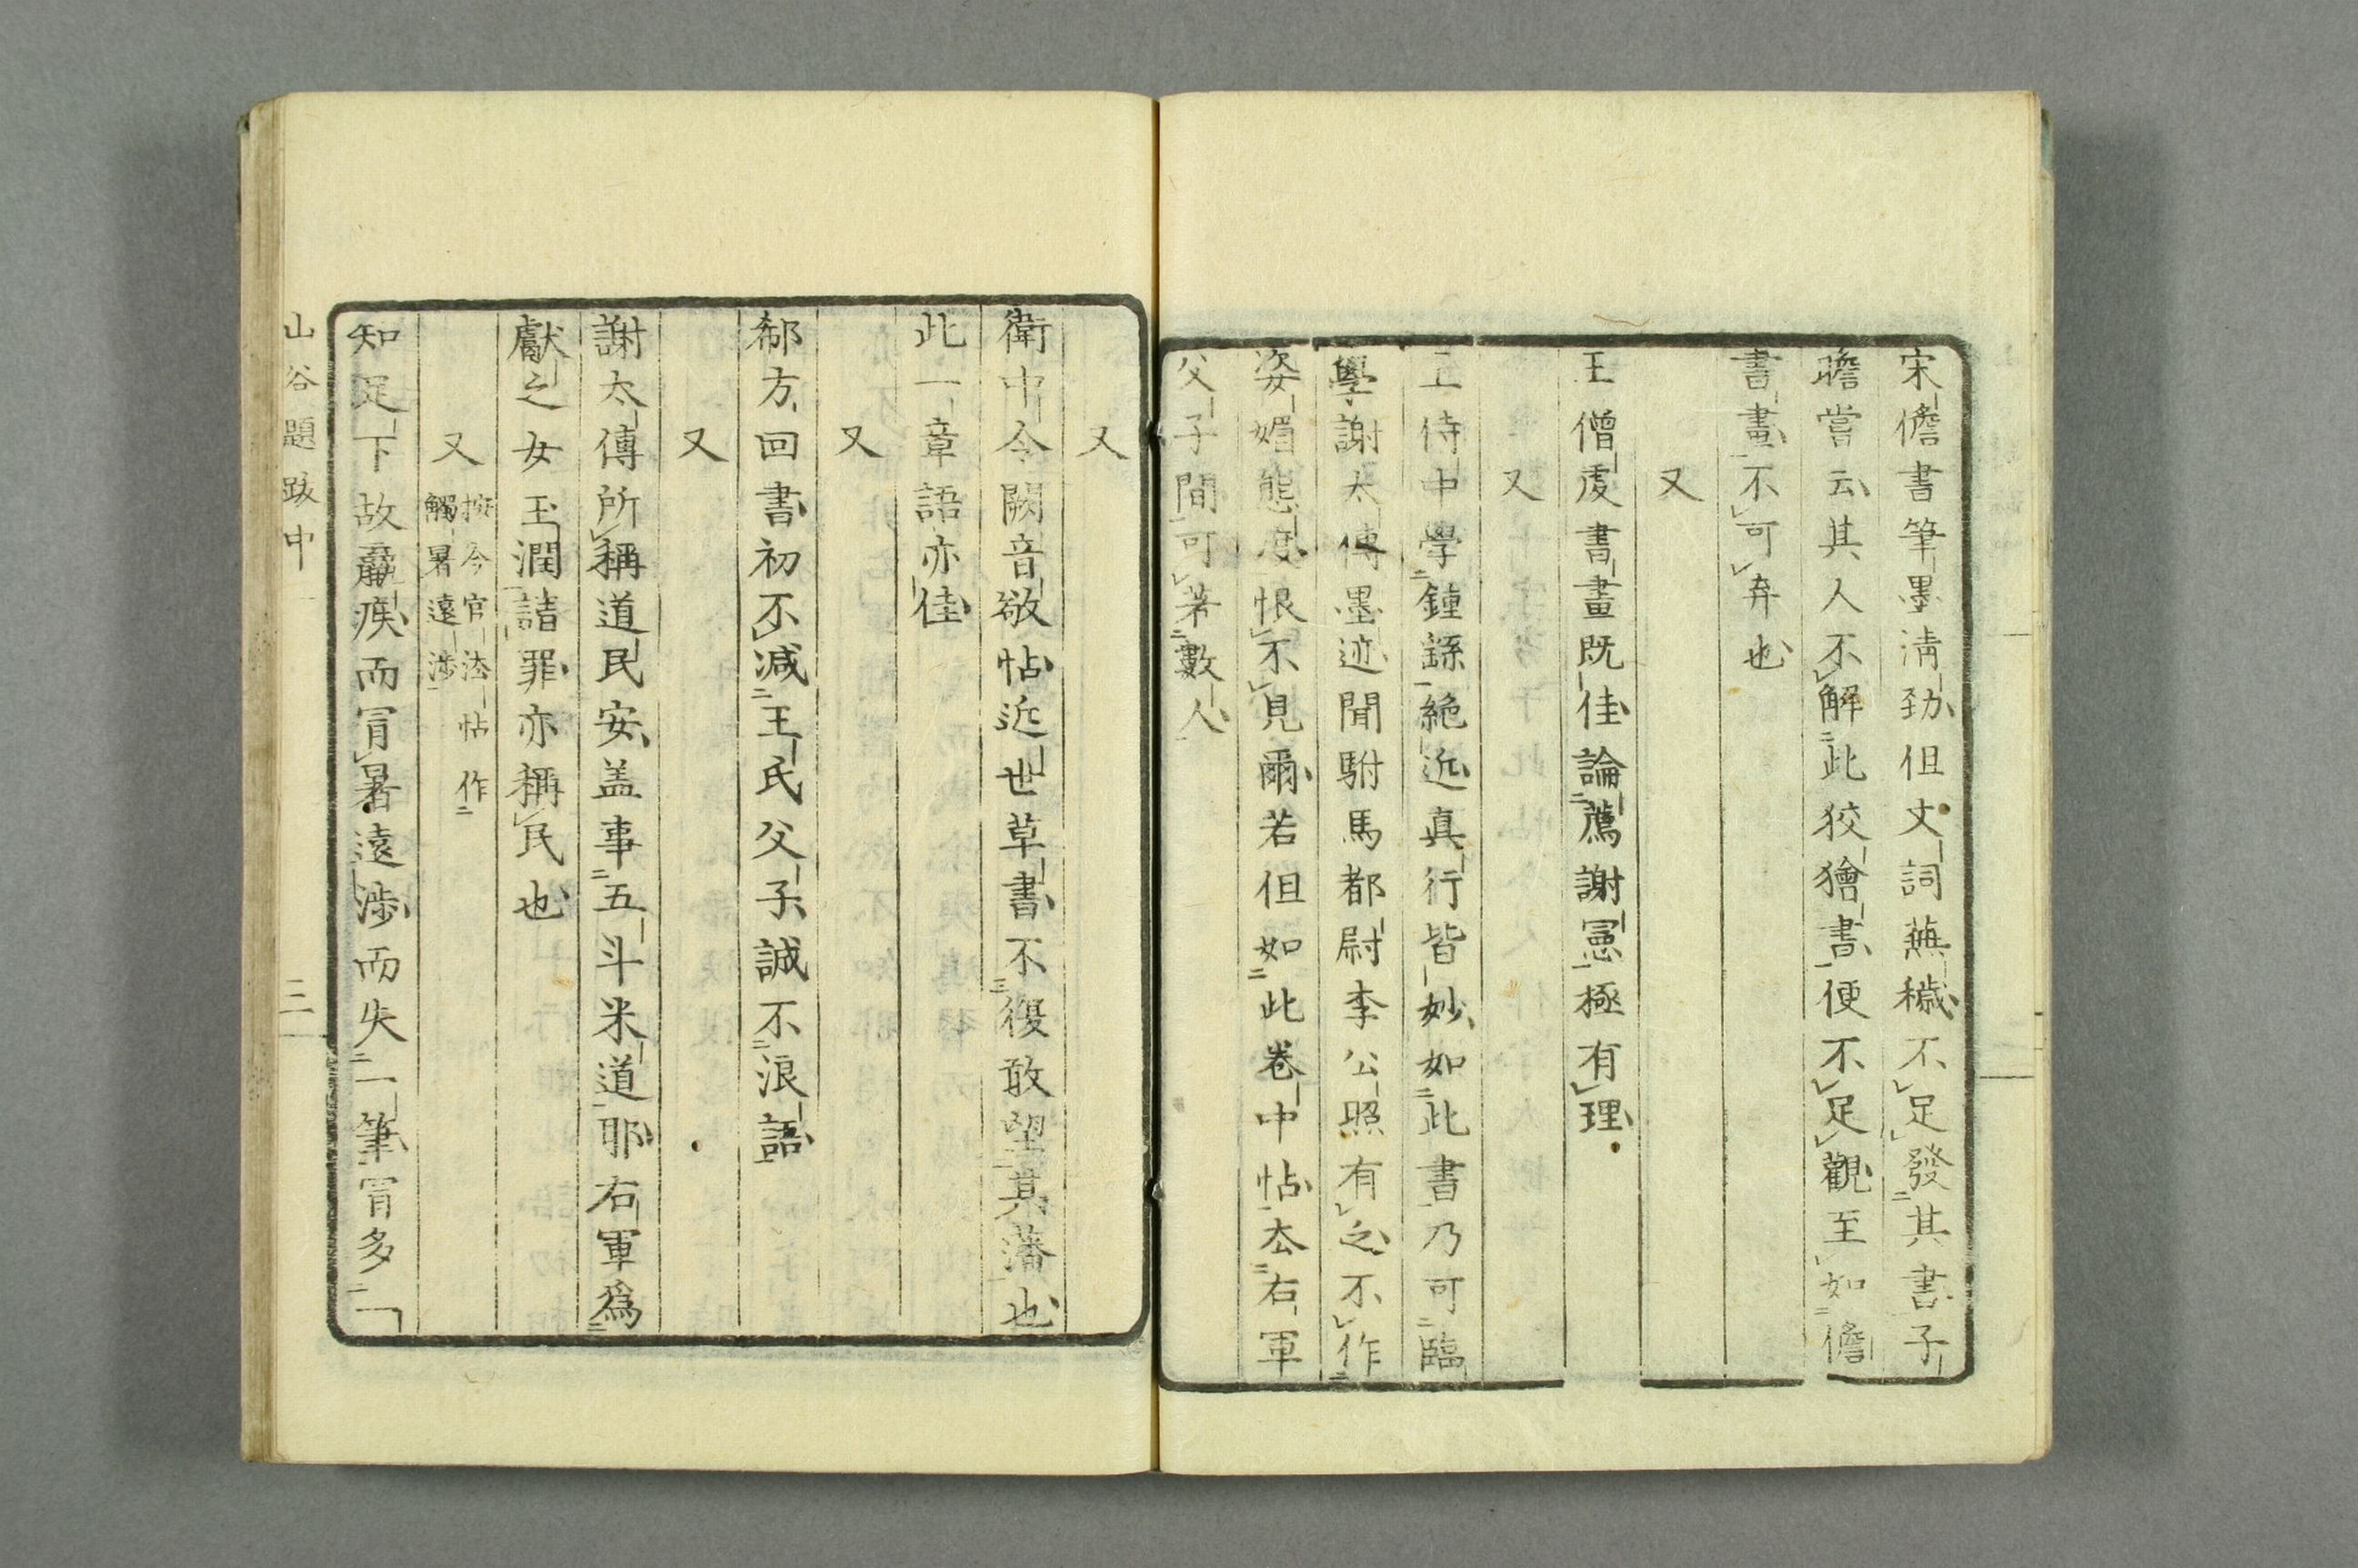 宋儋書筆墨清勁但文詞蕪穢不足發其書子
瞻嘗云其人不解此狡獪書便不足觀至如儋
書畫不可弃也
又
王僧虔書畫既佳論薦謝憲極有理
又
王侍中學鍾繇絕近真行皆妙如此書乃可臨
學謝太傅墨迹聞駙馬都尉李公照有之不作
姿媚態度恨不見爾若但如此卷中帖太右軍
父子間可著數人
又
衛中令闕音敬帖近世草書不復敢望其藩也
此一章語亦佳
又
郗方回書初不減王氏父子誠不浪語
又
謝太傅所稱道民安盖事五斗米道耶右軍爲
獻之女玉潤請罪亦稱民也
又 按今官法帖作觸暑遠涉
知足下故羸疾而冐暑遠涉而失一筆冐多一
山谷題跋中 三